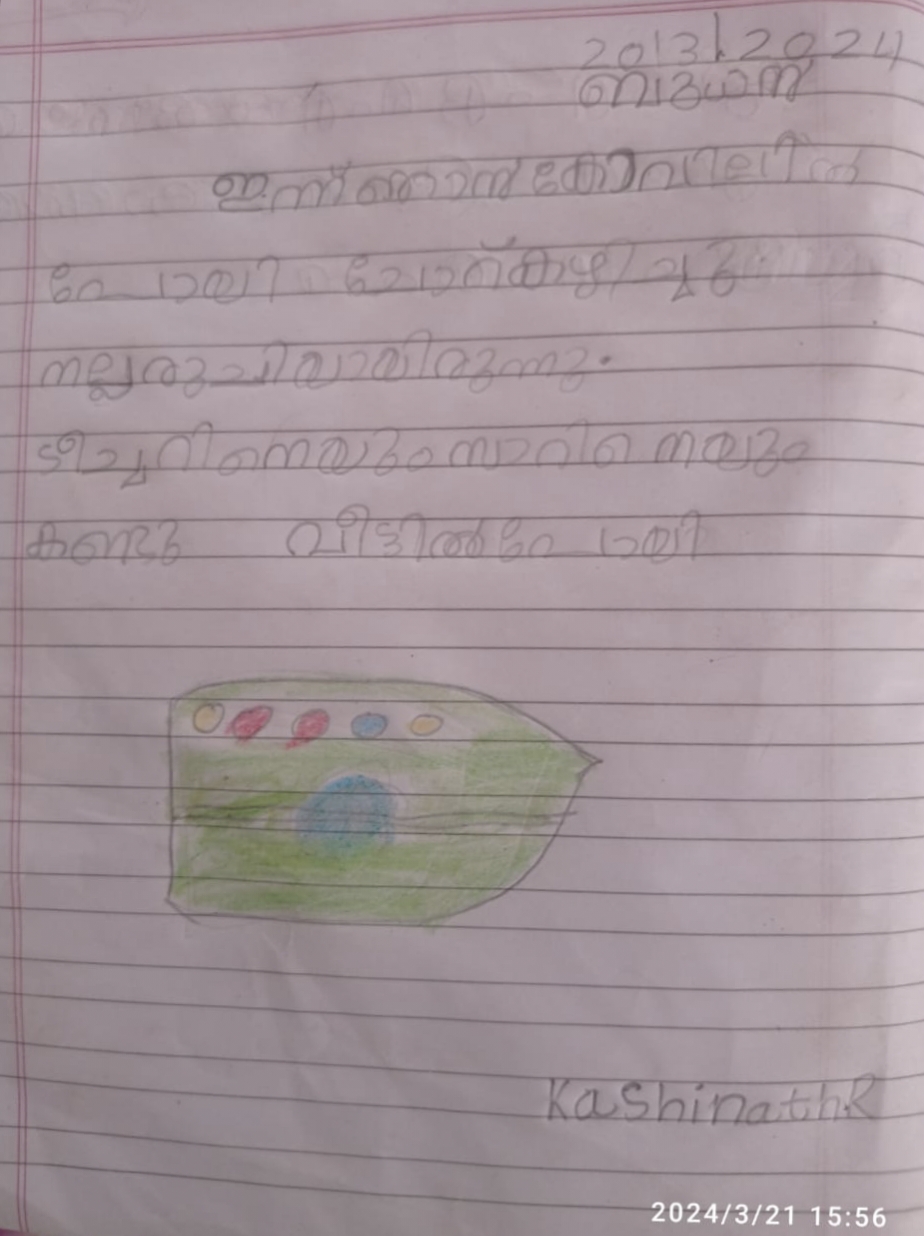 20|3|2024
ബുധൻ
ഇന്ന് ഞാൻ കോവിലിൽ
പോയി ചോറ്കഴിച്ചു
നല്ലരുചിയായിരുന്നു.
ടീച്ചറിനെയും സാറിനെയും
കണ്ടു വീട്ടിൽ പോയി
Kashinath.R
2024/3/21 15:56